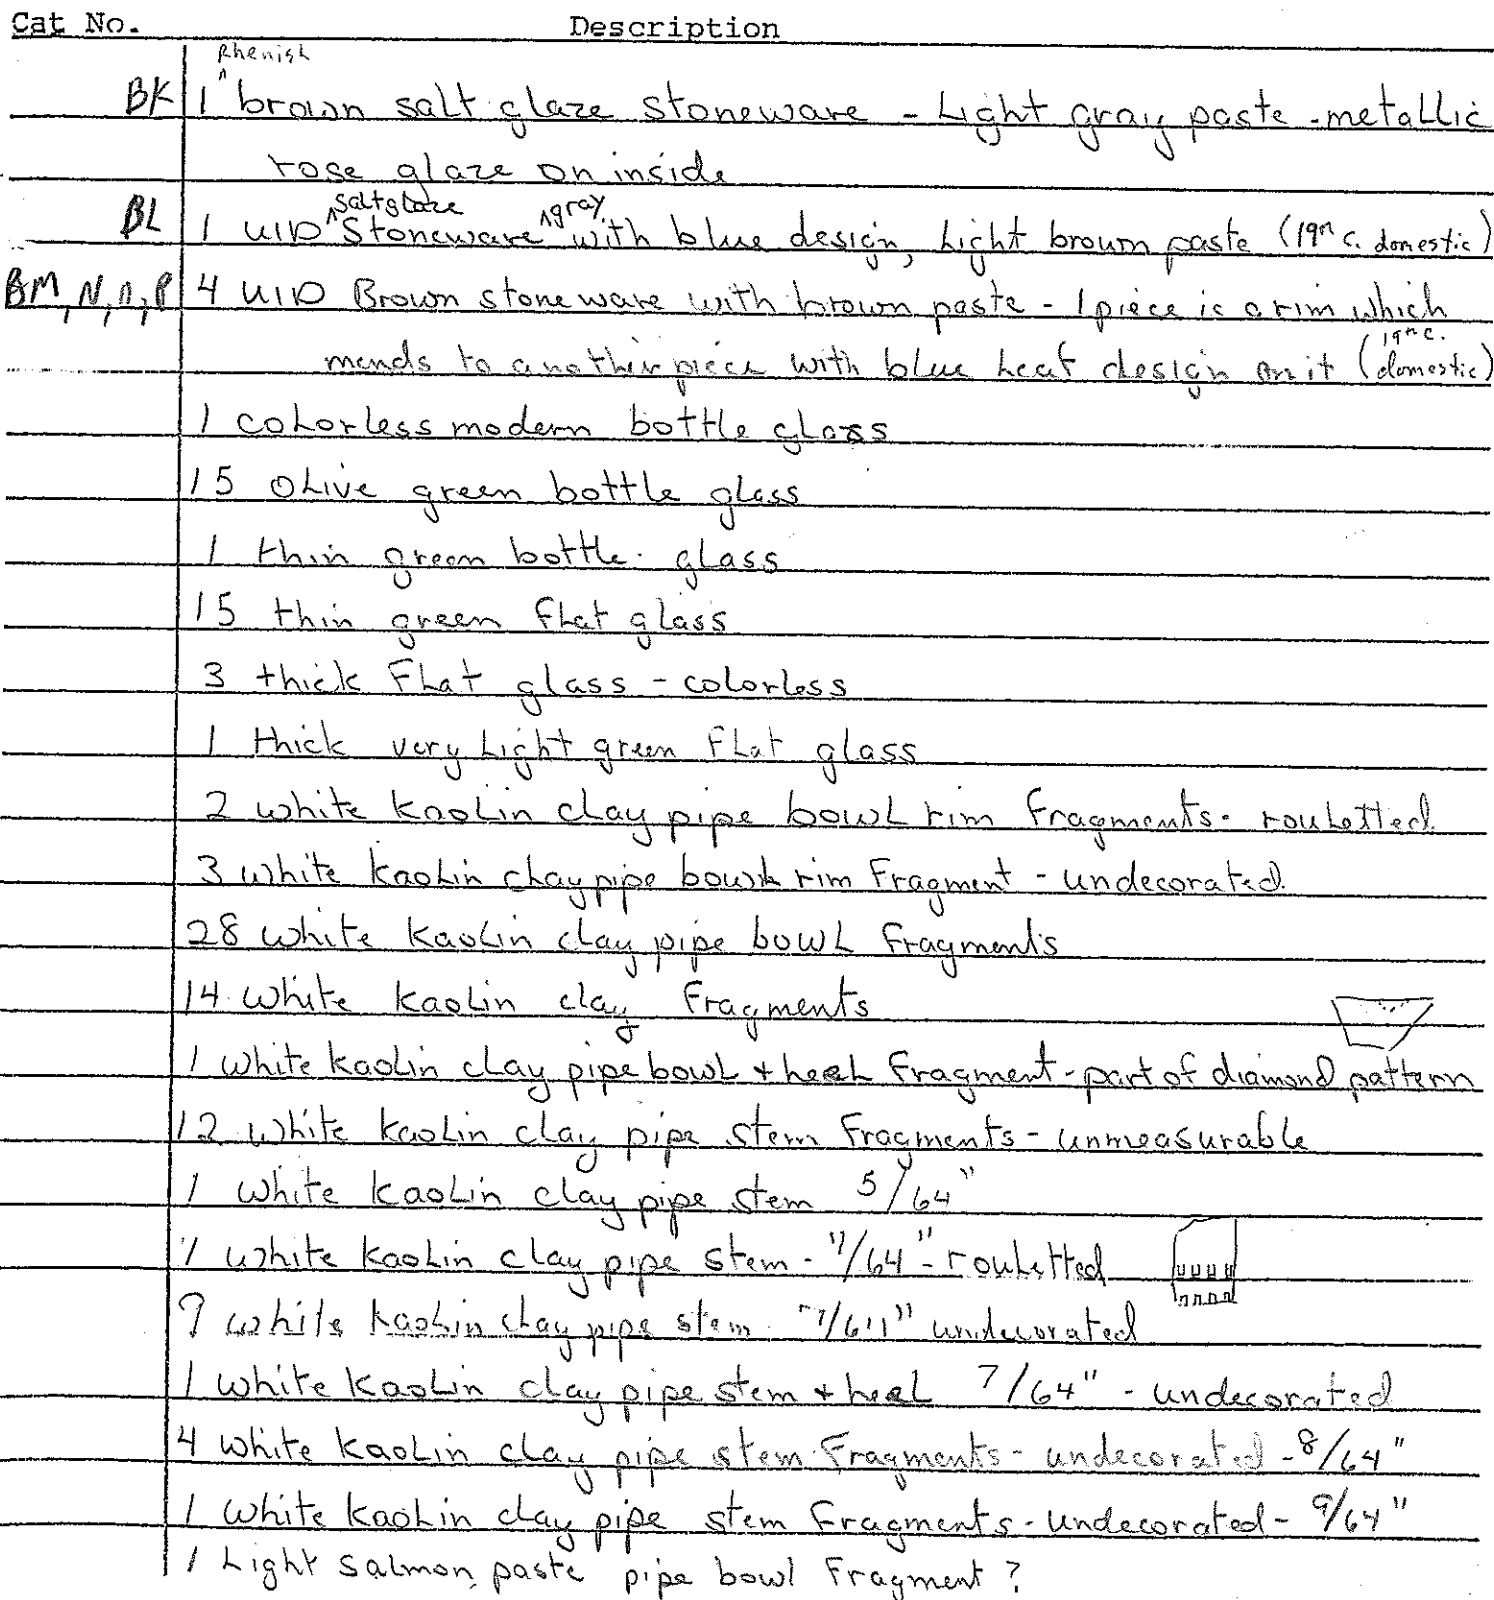 Cat No. Description
Rhenish
BK 1 ^ brown salt glaze stoneware - Light gray paste - metallic
rose glaze on inside
saltglaze gray
BL 1 UID ^ Stoneware ^ with blue design, Light brown paste (19th c. domestic)
BM, N, O, P 4 UID Brown stoneware with brown paste - 1 piece is a rim which
mends to another piece with blue leaf design on it (19th c. domestic)
1 colorless modern bottle glass
15 Olive green bottle glass
1 thin green bottle glass
15 thin green flat glass
3 thick Flat glass - colorless
1 thick very Light green Flat glass
2 white kaolin clay pipe bowl rim fragments - rouletted
3 white kaolin clay pipe bowl rim Fragment - undecorated
28 white kaolin clay pipe bowl fragments
14 white kaolin clay fragments
1 white kaolin clay pipe bowl + heel fragment - part of diamond pattern
12 white kaolin clay pipe stem fragments - unmeasurable
1 white kaolin clay pipe stem 5/64"
1 white kaolin clay pipe stem - /64" - rouletted
white kaolin clay pipe stem undecorated
1 white kaolin clay pipe stem + heel 7/64" - undecorated
4 white kaolin clay pipe stem Fragments - undecorated - 8/64"
1 white kaolin clay pipe stem Fragments - undecorated - 9/64"
1 Light salmon paste pipe bowl Fragment ?